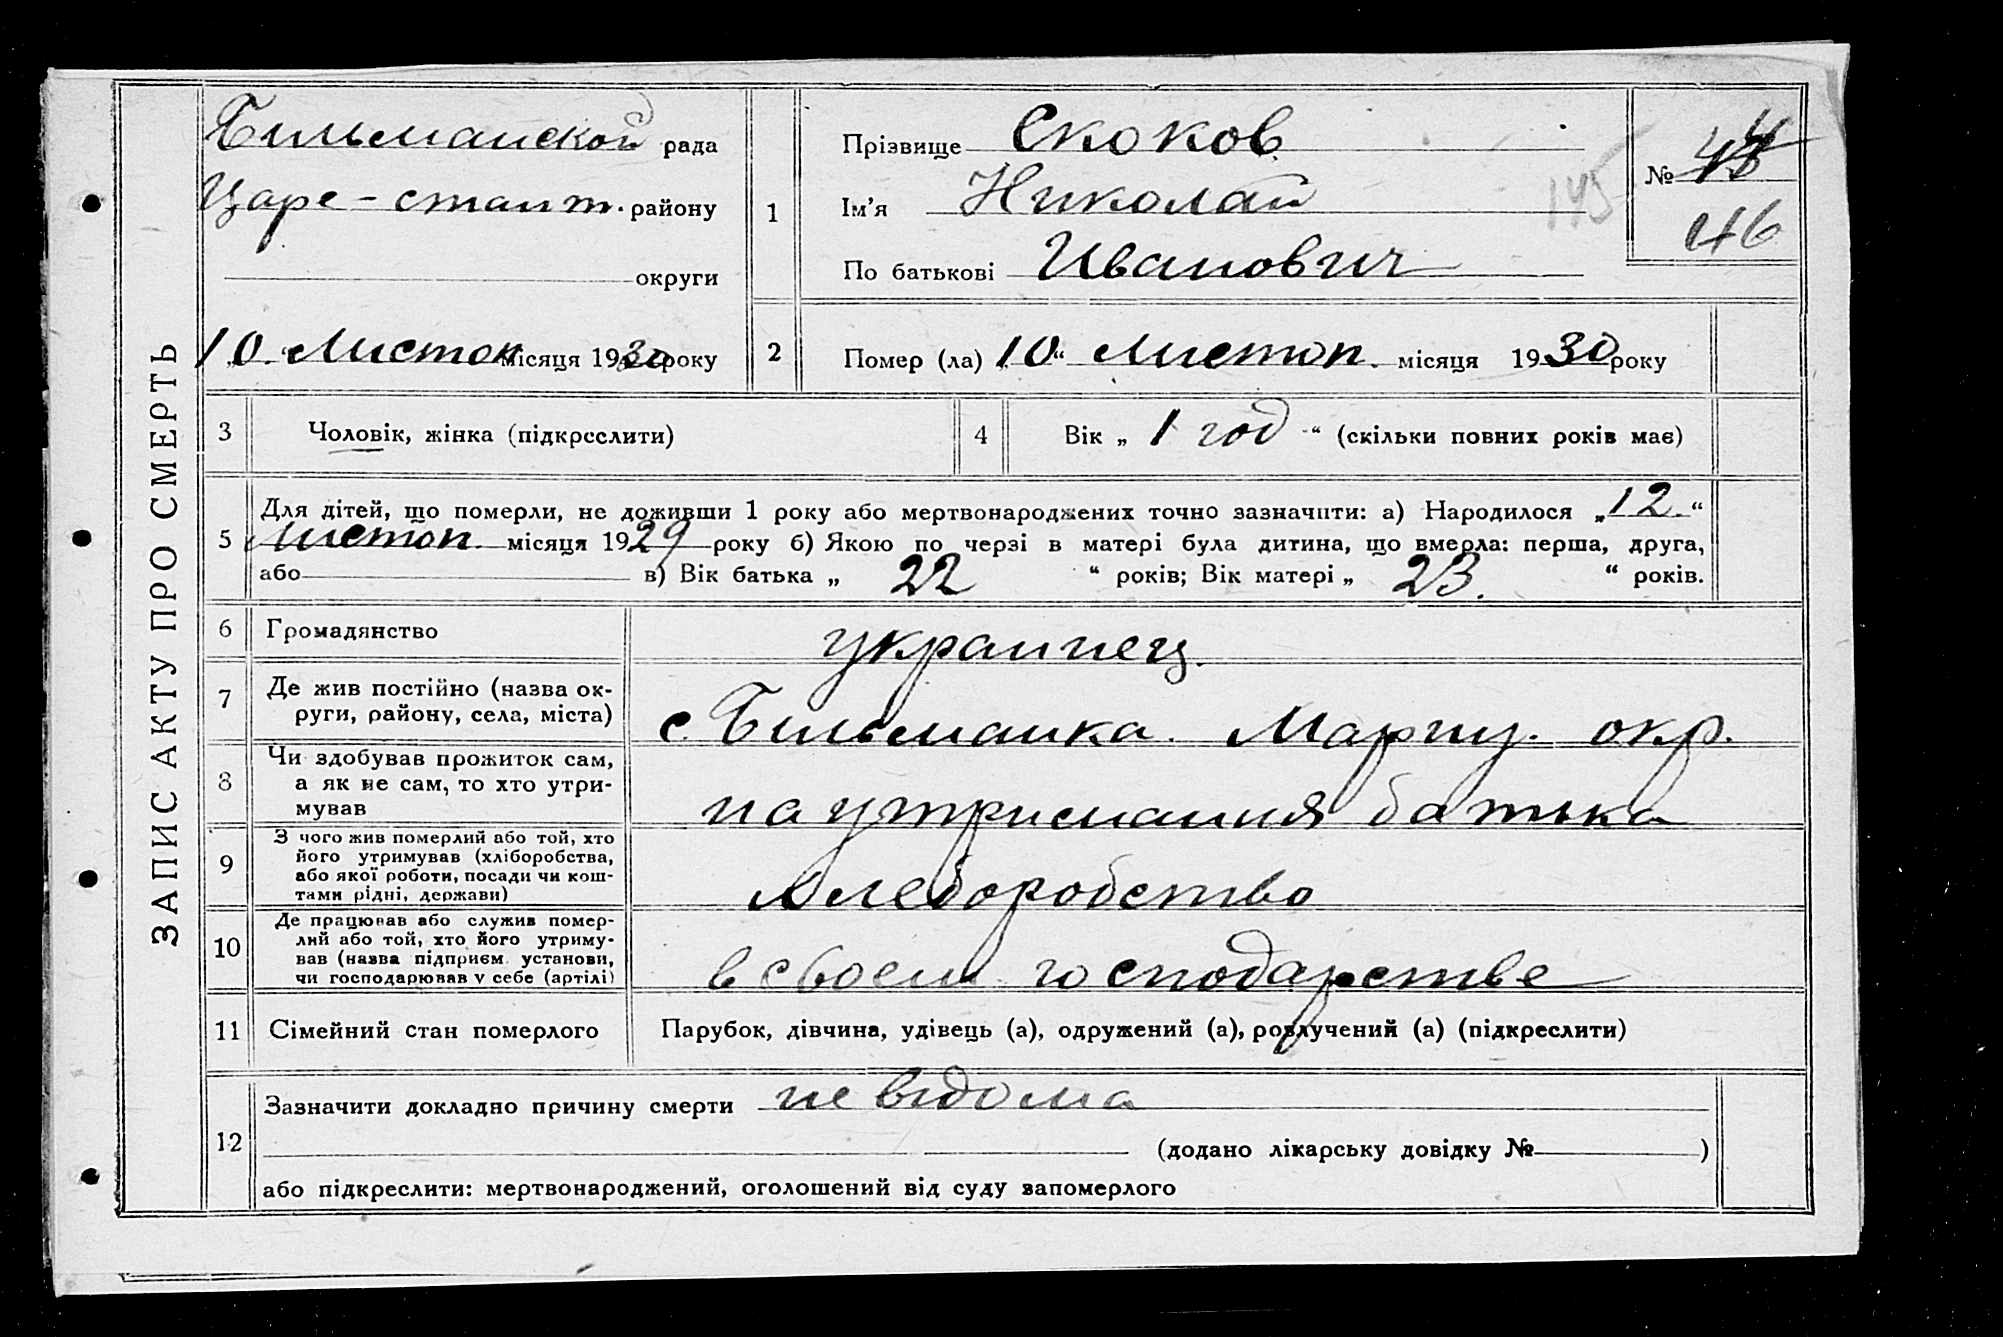 ЗАПИС АКТУ ПРО СМЕРТЬ
Бильманской рада
Царе-стант. району
округи
10 Листоп місяця 1930 року
1
Прізвище Скоков
Ім'я Николай
По батькові Иванович
145
№
46
2
Помер (ла) „10“ Листоп. місяця 1930 року
3
Чоловік, жінка (підкреслити)
4
Вік „ 1 год “ (скільки повних років має)
5
Для дітей, що померли, не доживши 1 року або мертвонароджених точно зазначити: а) Народилося „12“
Листоп. місяця 1929 року б) Якою по черзі в матері була дитина, що вмерла: перша, друга,
або в) Вік батька „ 22 “ років; Вік матері „ 23. “ років.
6
Громадянство
украинец.
7
Де жив постійно (назва ок-
руги, району, села, міста)
с. Бильманка. Мариу. окр.
8
Чи здобував прожиток сам,
а як не сам, то хто утри-
мував
на утримания батька
9
З чого жив померлий або той, хто
його утримував (хліборобства,
або якої роботи, посади чи кош-
тами рідні, держави)
хлеборобство
10
Де працював або служив помер-
лий або той, хто його утриму-
вав (назва підприєм. установи,
чи господарював у себе (артілі)
в своем господарстве
11
Сімейний стан померлого
Парубок, дівчина, удівець (а), одружений (а), розлучений (а) (підкреслити)
12
Зазначити докладно причину смерти не відома
(додано лікарську довідку № )
або підкреслити: мертвонароджений, оголошений від суду запомерлого